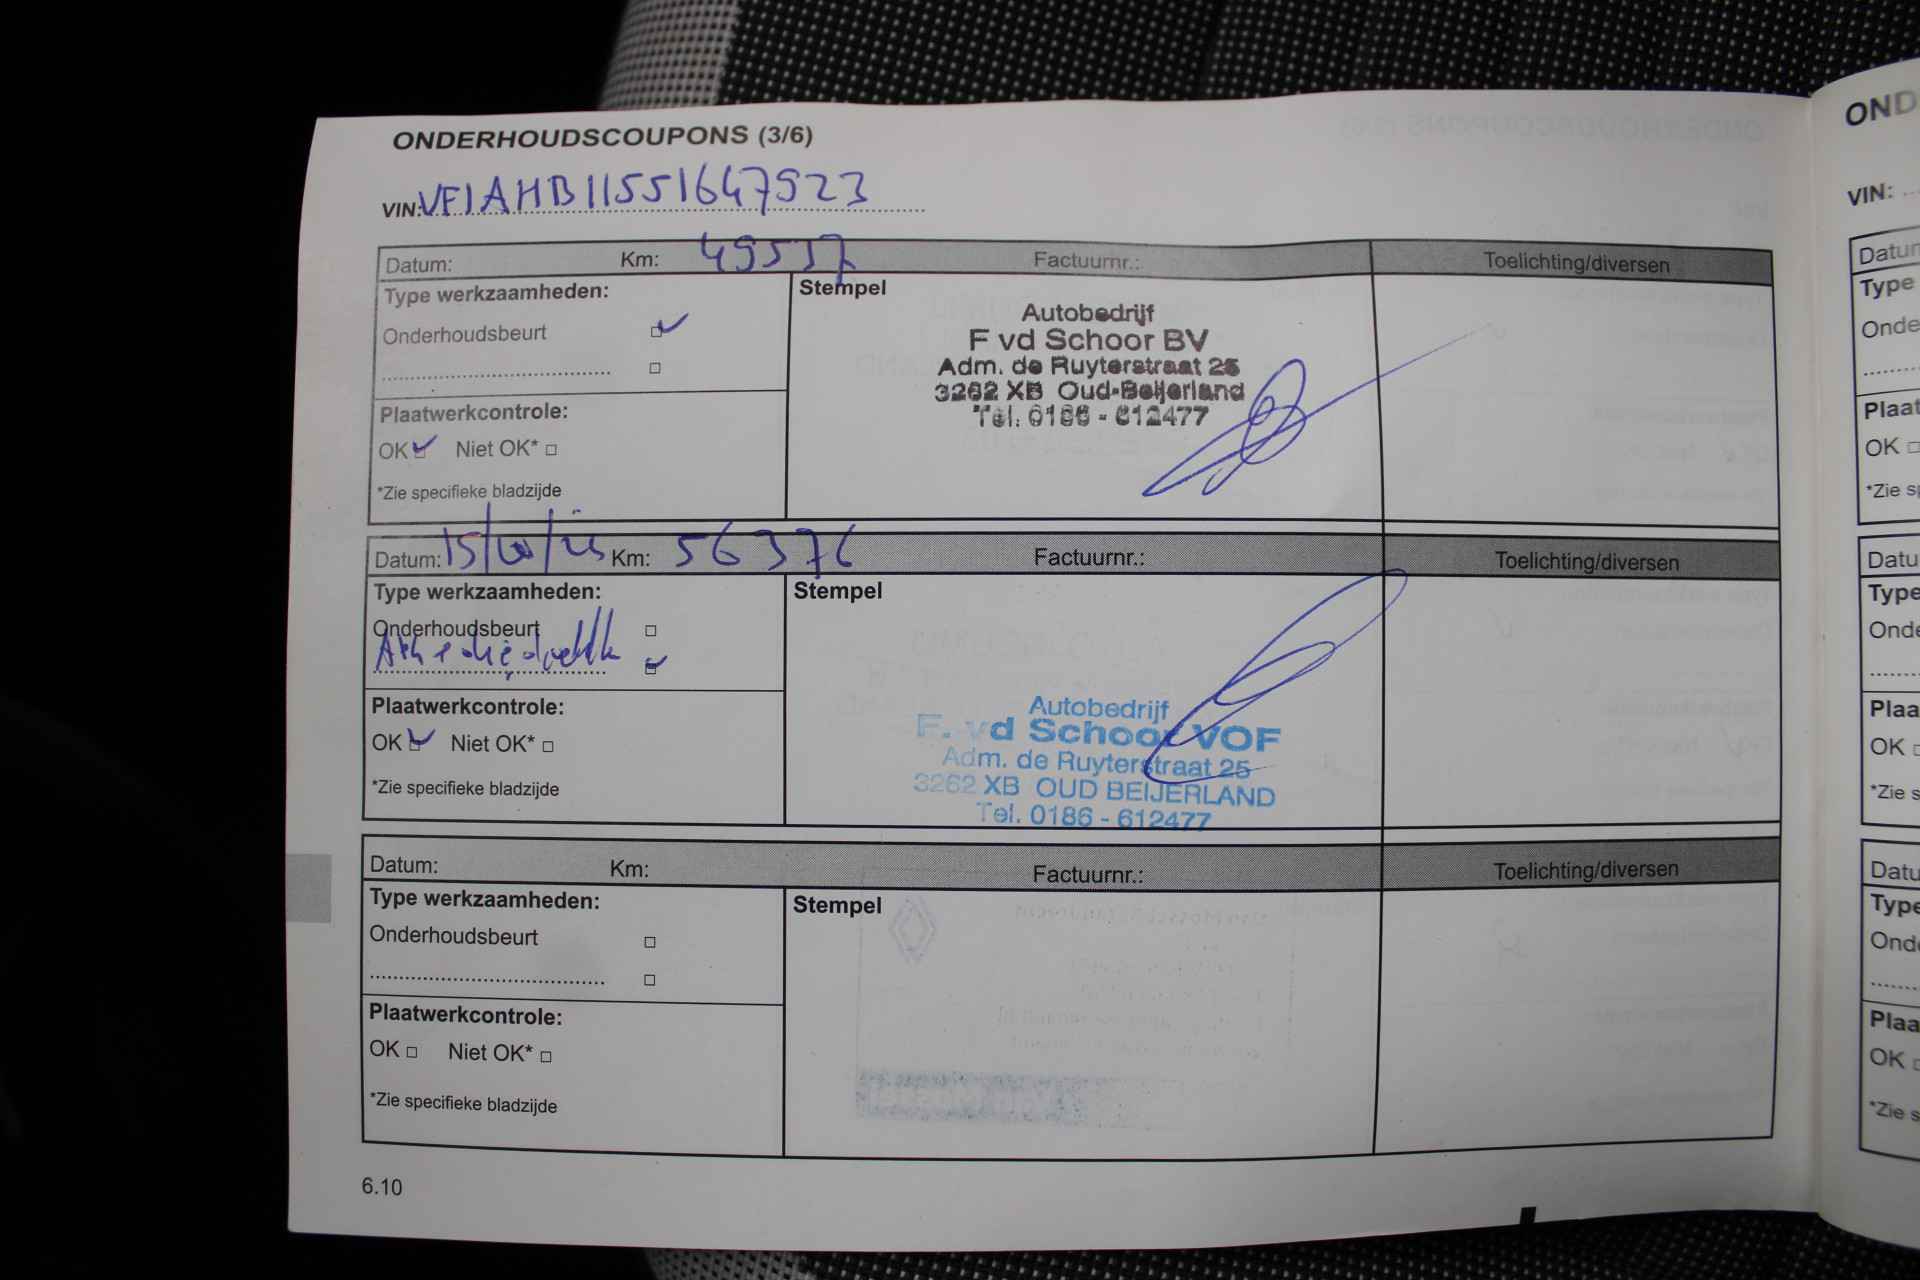 ONDERHOUDSCOUPONS (3/6)
VIN: VF1AHB11551647923
Datum: Km: 49537 Factuurnr.: Toelichting/diversen
Type werkzaamheden:
Stempel
Onderhoudsbeurt
Autobedrijf
F vd Schoor BV
Adm. de Ruyterstraat 25
3262 XB Oud-Beijerland
Tel. 0186 - 612477
Plaatwerkcontrole:
OK Niet OK*
*Zie specifieke bladzijde
Datum: Km: 56376 Factuurnr.: Toelichting/diversen
Type werkzaamheden:
Stempel
Onderhoudsbeurt
Plaatwerkcontrole:
OK Niet OK*
*Zie specifieke bladzijde
Autobedrijf
F. vd Schoor VOF
Adm. de Ruyterstraat 25
3262 XB OUD BEIJERLAND
Tel. 0186 - 612477
Datum: Km: Factuurnr.: Toelichting/diversen
Type werkzaamheden:
Stempel
Onderhoudsbeurt
Plaatwerkcontrole:
OK Niet OK*
*Zie specifieke bladzijde
6.10
VIN:
Type
OK
OK
OK